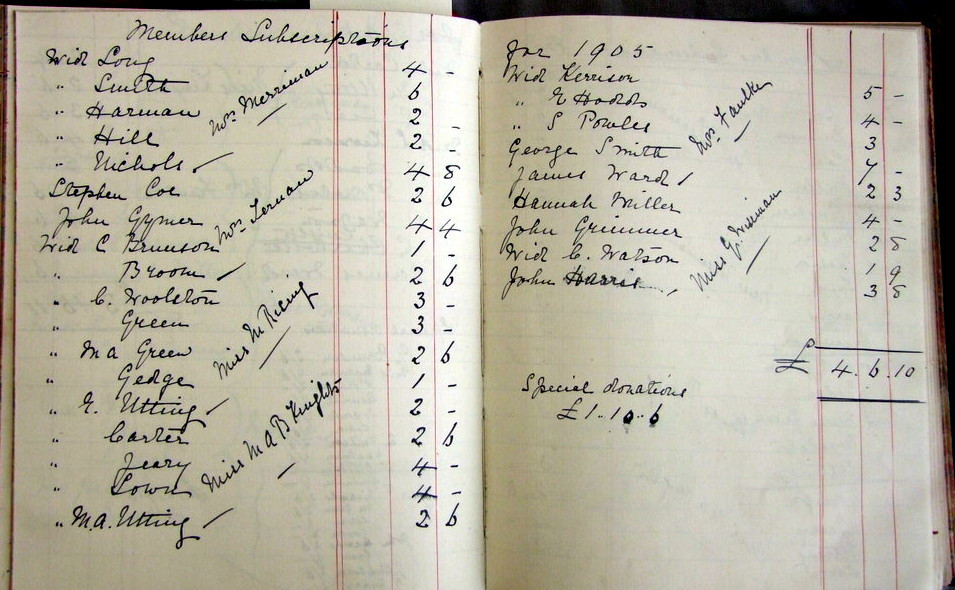 Members Subscriptions
Wid Long 4 -
" Smith 6
" Harman 2
" Hill 2 -
" Nichols 4 8
Mrs Merriman
Stephen Coe 2 6
John Gymer 4 4
Wid C Brunson 1 -
" Broom 2 6
Mrs
" C. Woolston 3 -
" Green 3 -
" M a Green 2 6
" Gedge 1 -
" E. Utting 2 -
Miss M
" Carter 2 6
" Jeary 4 -
" Lown 4 -
" M.A. Utting 2 6
Miss M A B Knights
for 1905
Wid Kerrison 5 -
" E Hodds 4 -
" S Powles 3
George Smith 7 -
James Ward 2 3
Mrs Faulke
Hannah Miller 4 -
John Grimmer 2 8
Wid C. Watson 1 9
John Harris 3 8
Miss G.
£ 4. 6. 10
Special donations
£1..10..6